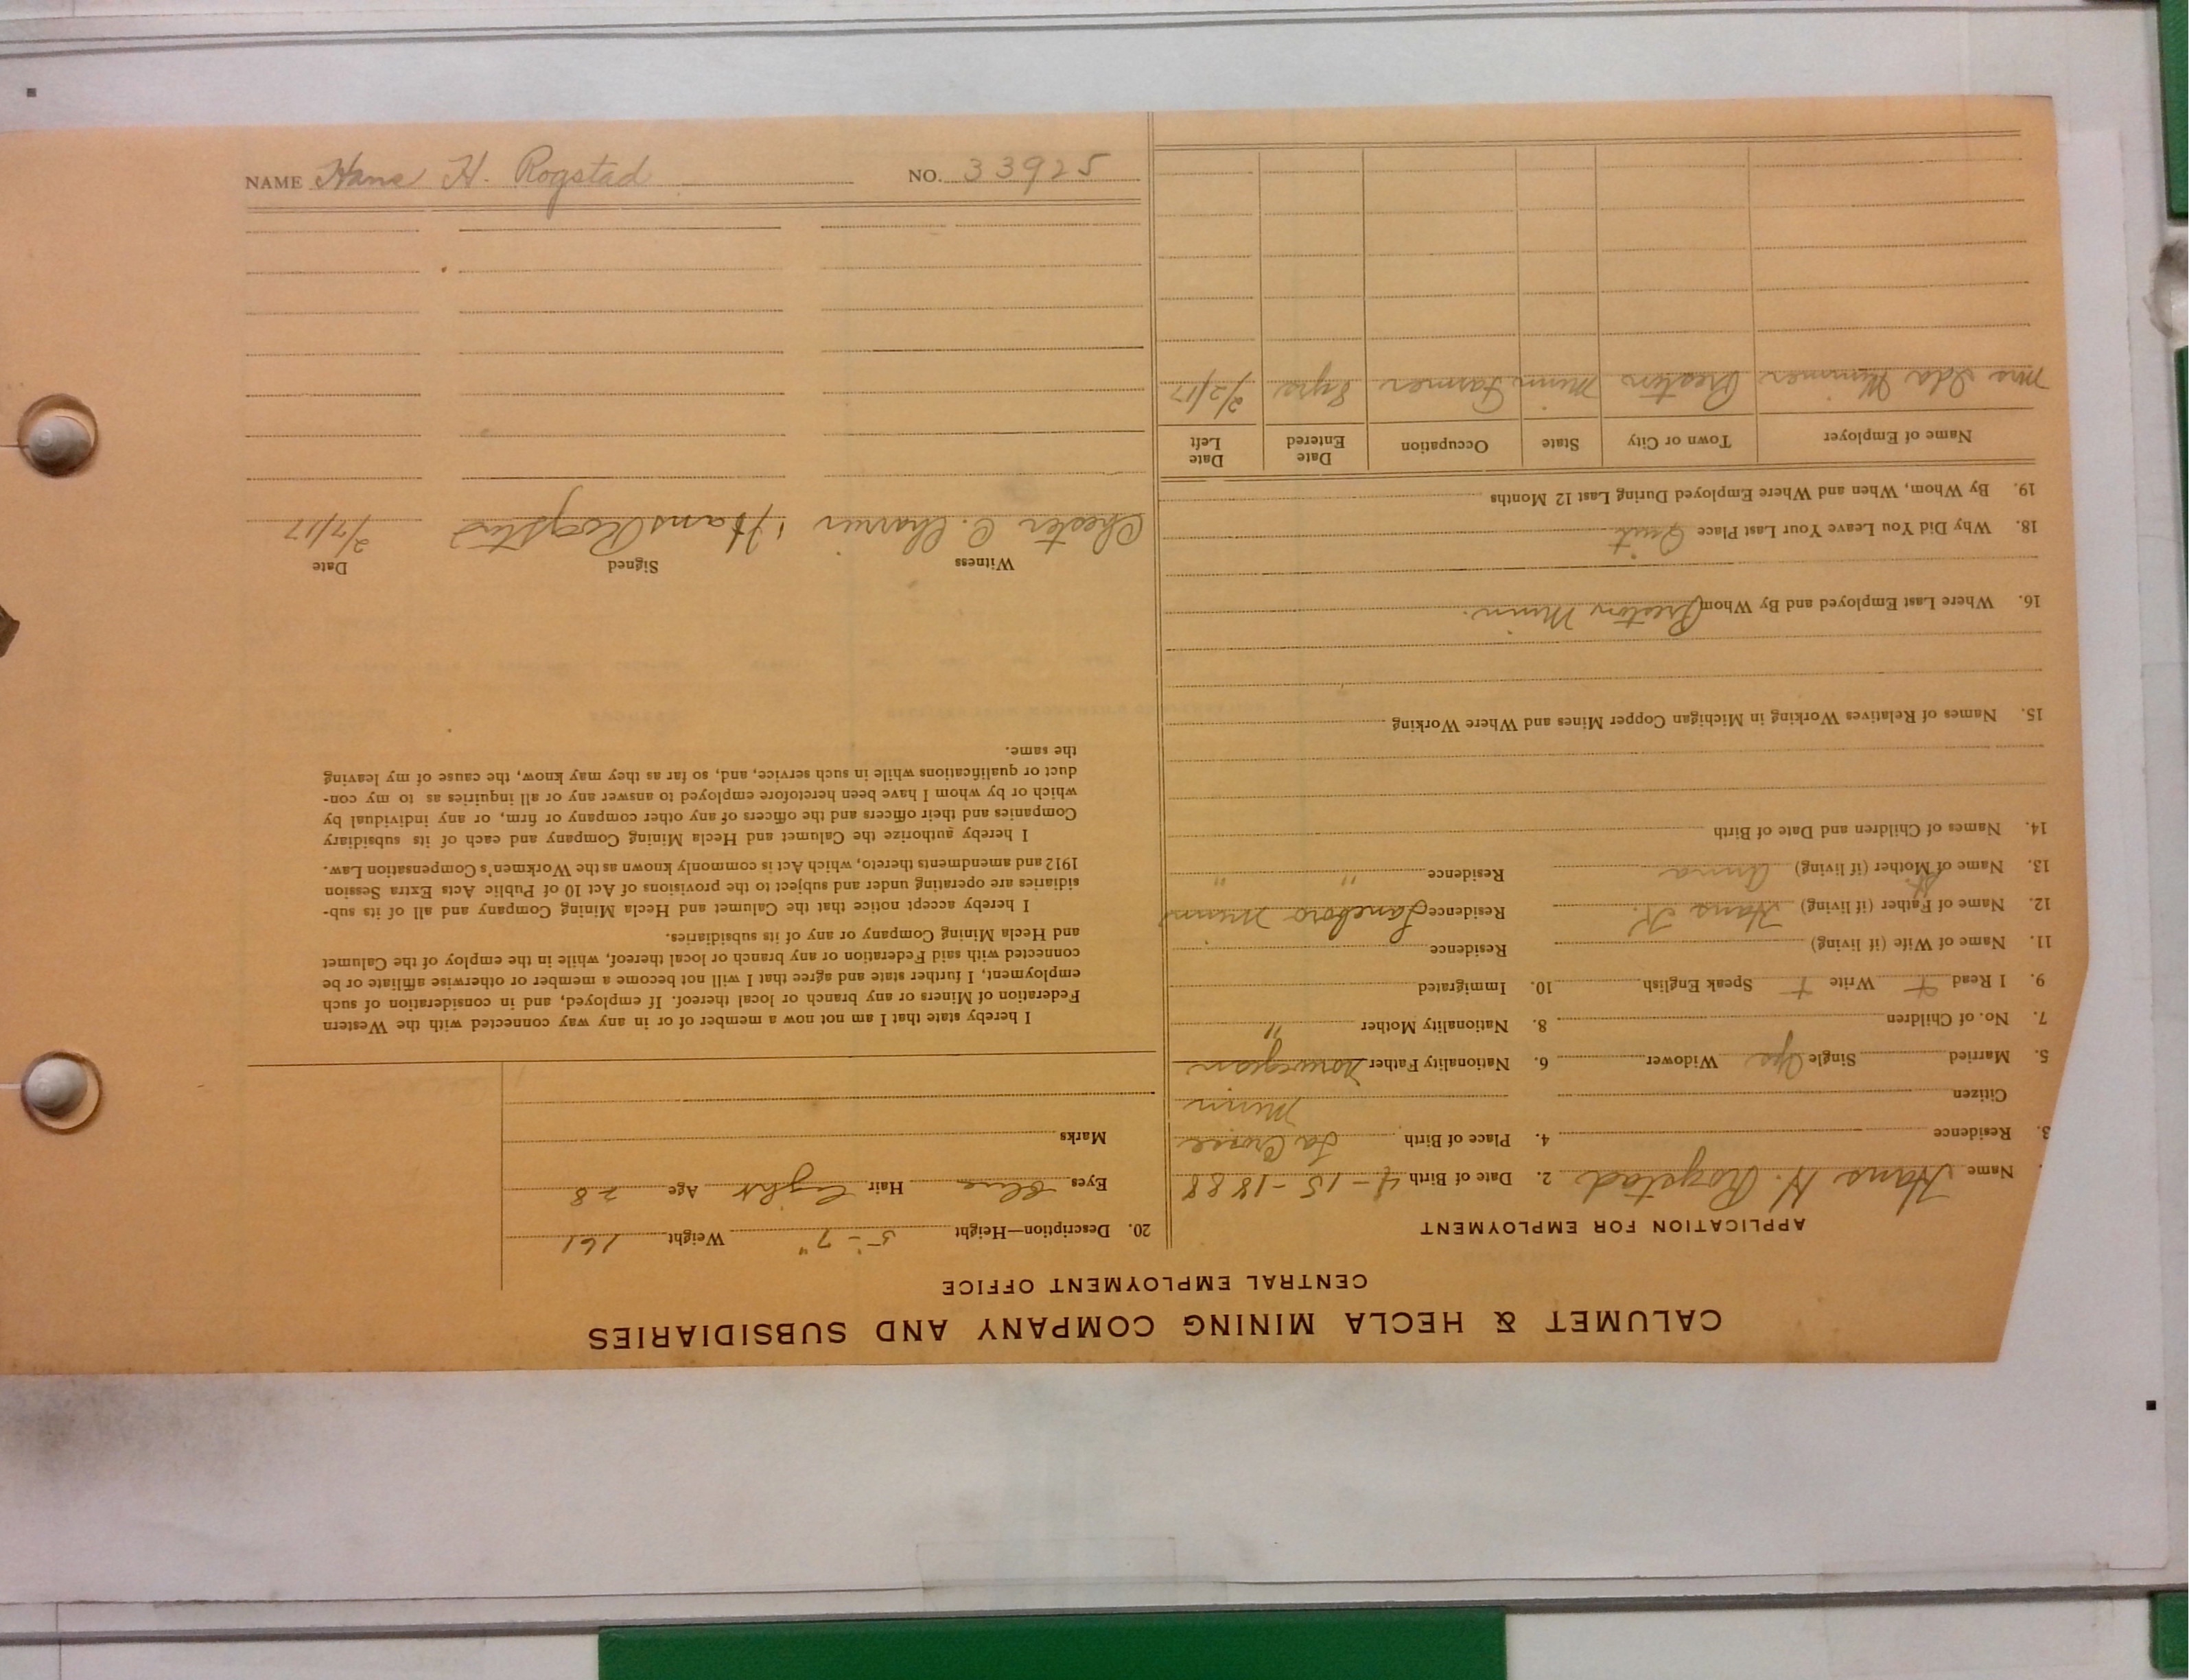 NAME Hans H. Rogstad NO. 33925
CALUMET & HECLA MINING COMPANY AND SUBSIDIARIES
CENTRAL EMPLOYMENT OFFICE
APPLICATION FOR EMPLOYMENT
Name Hans H. Rogstad 2. Date of Birth 4-15-1888
3. Residence 4. Place of Birth La Crosse
Citizen Minn
5. Married Single Yes Widower 6. Nationality Father Norwegian
7. No. of Children 8. Nationality Mother "
9. I Read + Write + Speak English 10. Immigrated
11. Name of Wife (if living) Residence
12. Name of Father (if living) Hans K. Residence Lanesboro Minn
13. Name of Mother (if living) Anna Residence " "
14. Names of Children and Date of Birth
15. Names of Relatives Working in Michigan Copper Mines and Where Working
16. Where Last Employed and By Whom Preston Minn.
18. Why Did You Leave Your Last Place Quit
19. By Whom, When and Where Employed During Last 12 Months
Name of Employer Town or City State Occupation Date Entered Date Left
Mrs Ida Preston Minn Farmer 8 yrs 2/2/17
20. Description—Height 5'-7" Weight 161
Eyes Blue Hair Light Age 28
Marks
I hereby state that I am not now a member of or in any way connected with the Western
Federation of Miners or any branch or local thereof. If employed, and in consideration of such
employment, I further state and agree that I will not become a member or otherwise affiliate or be
connected with said Federation or any branch or local thereof, while in the employ of the Calumet
and Hecla Mining Company or any of its subsidiaries.
I hereby accept notice that the Calumet and Hecla Mining Company and all of its sub-
sidiaries are operating under and subject to the provisions of Act 10 of Public Acts Extra Session
1912 and amendments thereto, which Act is commonly known as the Workmen's Compensation Law.
I hereby authorize the Calumet and Hecla Mining Company and each of its subsidiary
Companies and their officers and the officers of any other company or firm, or any individual by
which or by whom I have been heretofore employed to answer any or all inquiries as to my con-
duct or qualifications while in such service, and, so far as they may know, the cause of my leaving
the same.
Witness Signed Date
Chester C. Hans Rogstad 2/7/17